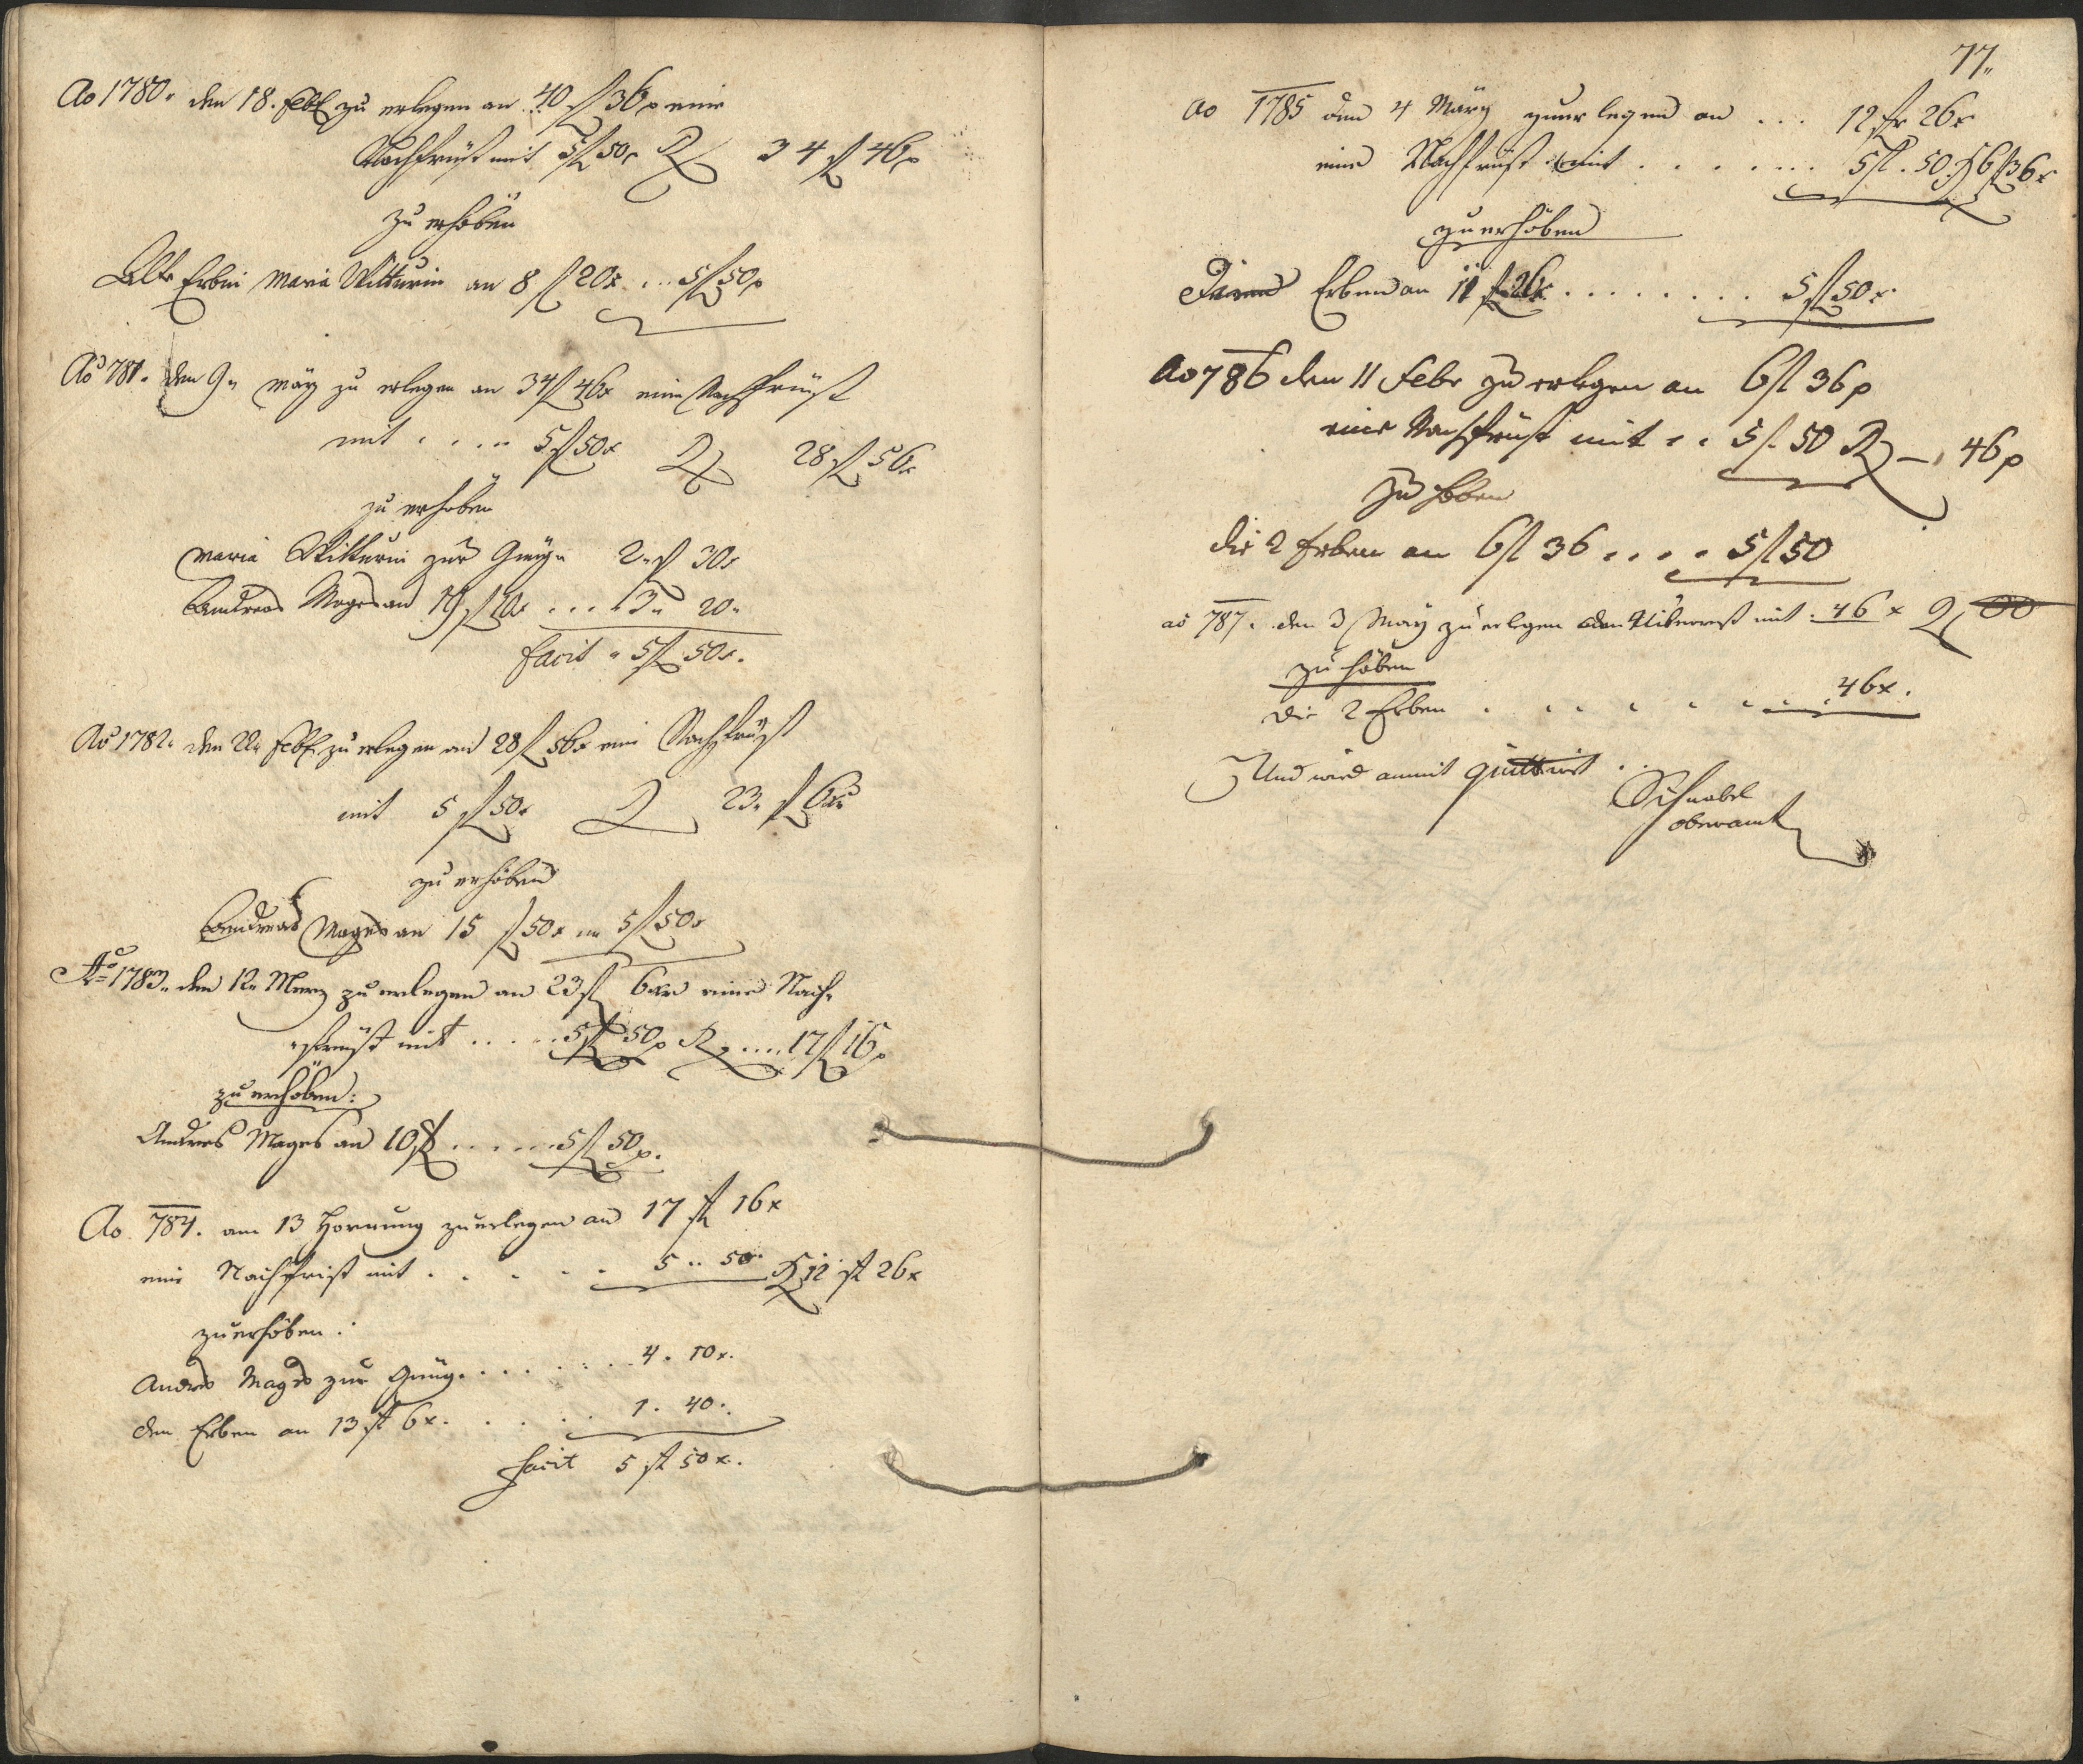 Ao 1780. den 18. Feb: zu erlegen an 40 fl 36 x eine
Nachfrüst mit 5 fl 50 x R 34 fl 46 x
zu erhöben
Erbin Maria Wittwin an 8 fl 20 x ... 5 fl 50 x
Ao 781. den 9. März zu erlegen an 34 fl 46 x eine Nachfrüst
mit .... 5 fl 50 x R 28 fl 56 x
zu erhöben
Maria zur Gnüge 2 fl 30 x
Andreas Mages an 19 fl 10 x ... 3. 20.
facit 5 fl 50 x.
Ao 1782. den 22. Feb: zu erlegen an 28 fl 56 x eine Nachfrüst
mit 5 fl 50 x R 23. fl 6 x
zu erhöben
Andreas Mages an 15 fl 50 x 5 fl 50 x
Ao 1783. den 12. Merz zu erlegen an 23 fl 6 xr eine Nach-
früst mit ..... 5 fl 50 x R .... 17 fl 16 x
zu erhöben:
Andres Mages an 10 fl ...... 5 fl 50 x.
Ao 784. am 13 Hornung zuerlegen an 17 fl 16 x
eine Nachfrist mit ...... 5 .. 50. R 12 fl 26 x
zuerhöben:
Andres Mages zur Gnüg ....... 4. 10 x.
den Erben an 13 fl 6 x ..... 1. 40.
facit 5 fl 50 x.
77.
ao 1785 den 4 März zuerlegen an ... 12 fl 26 x
eine Nachfrüst mit ....... 5 fl. 50. R 6 fl 36 x
zu erhöben
Erben an 11 fl 26 x ........ 5 fl 50 x.
Ao 786 den 11 Febr zu erlegen an 6 fl 36 x
eine Nachfrüst mit .. 5 fl. 50 R — 46 x
zu höben
die 2 Erben an 6 fl 36 .... 5 fl 50
ao 787. den 3 May zu erlegen den Überrest mit . 46 x R 00
zu höben
die 2 Erben ........ 46 x.
Und wird anmit quittirt.
Schnabel
oberamt